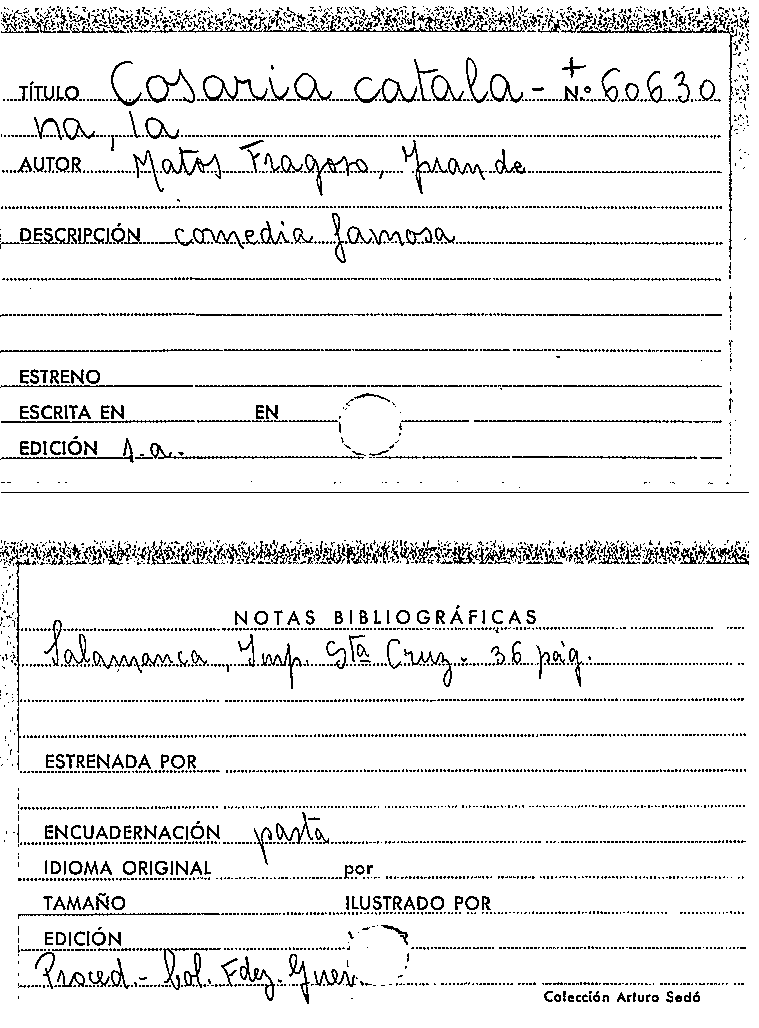 TÍTULO Cosaria catala- + N.º 60630
na, la
AUTOR Matos Fragoso, Juan de
DESCRIPCIÓN comedia famosa
ESTRENO
ESCRITA EN EN
EDICIÓN s.a.
NOTAS BIBLIOGRÁFICAS
Salamanca, Imp. Sta Cruz - 36 pág.
ESTRENADA POR
ENCUADERNACIÓN pasta
IDIOMA ORIGINAL por
TAMAÑO ILUSTRADO POR
EDICIÓN
Proced.- Col. Fdez. Guer.
Colección Arturo Sedó